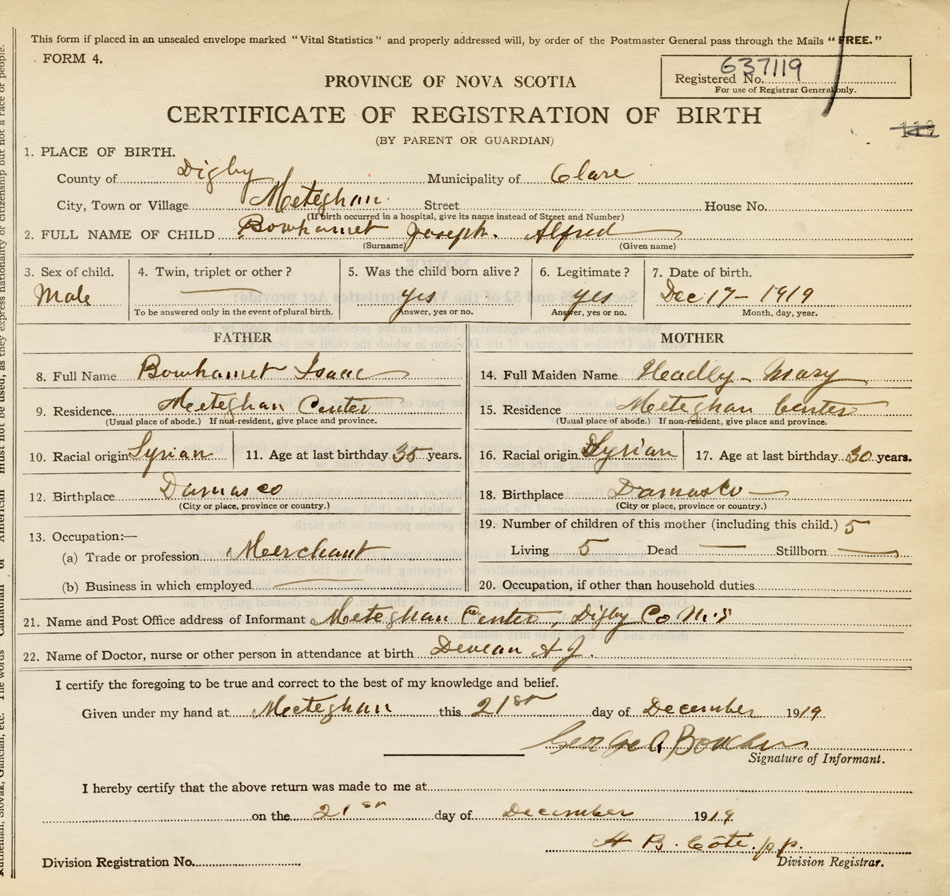 This form if placed in an unsealed envelope marked "Vital Statistics" and properly addressed will, by order of the Postmaster General pass through the Mails "FREE."
FORM 4.
637119
Registered No.
For use of Registrar General only.
PROVINCE OF NOVA SCOTIA
CERTIFICATE OF REGISTRATION OF BIRTH
(BY PARENT OR GUARDIAN)
1. PLACE OF BIRTH.
County of Digby Municipality of Clare
City, Town or Village Meteghan Street House No.
(If birth occurred in a hospital, give its name instead of Street and Number)
2. FULL NAME OF CHILD Bowhamet Joseph. Alfred
(Surname) (Given name)
3. Sex of child. 4. Twin, triplet or other? 5. Was the child born alive? 6. Legitimate? 7. Date of birth.
Male yes yes Dec 17- 1919
To be answered only in the event of plural birth. Answer, yes or no. Answer, yes or no. Month, day, year.
FATHER MOTHER
8. Full Name Bowhamet Isaac 14. Full Maiden Name Headley - Mary
9. Residence. Meteghan Center 15. Residence Meteghan Center
(Usual place of abode.) If non-resident, give place and province. (Usual place of abode.) If non-resident, give place and province.
10. Racial origin Syrian 11. Age at last birthday 35 years. 16. Racial origin Syrian 17. Age at last birthday 30 years.
12. Birthplace Damasco 18. Birthplace Damasko
(City or place, province or country.) (City or place, province or country.)
13. Occupation:— 19. Number of children of this mother (including this child.) 5
(a) Trade or profession Meerchant Living 5 Dead Stillborn
(b) Business in which employed 20. Occupation, if other than household duties
21. Name and Post Office address of Informant Meteghan Center, Digby Co N.S
22. Name of Doctor, nurse or other person in attendance at birth Deveau A J.
I certify the foregoing to be true and correct to the best of my knowledge and belief.
Given under my hand at Meeteghan this 21st day of December 1919
Signature of Informant.
I hereby certify that the above return was made to me at
on the 21st day of December 1919
H B. Côté. p.p.
Division Registration No. Division Registrar.